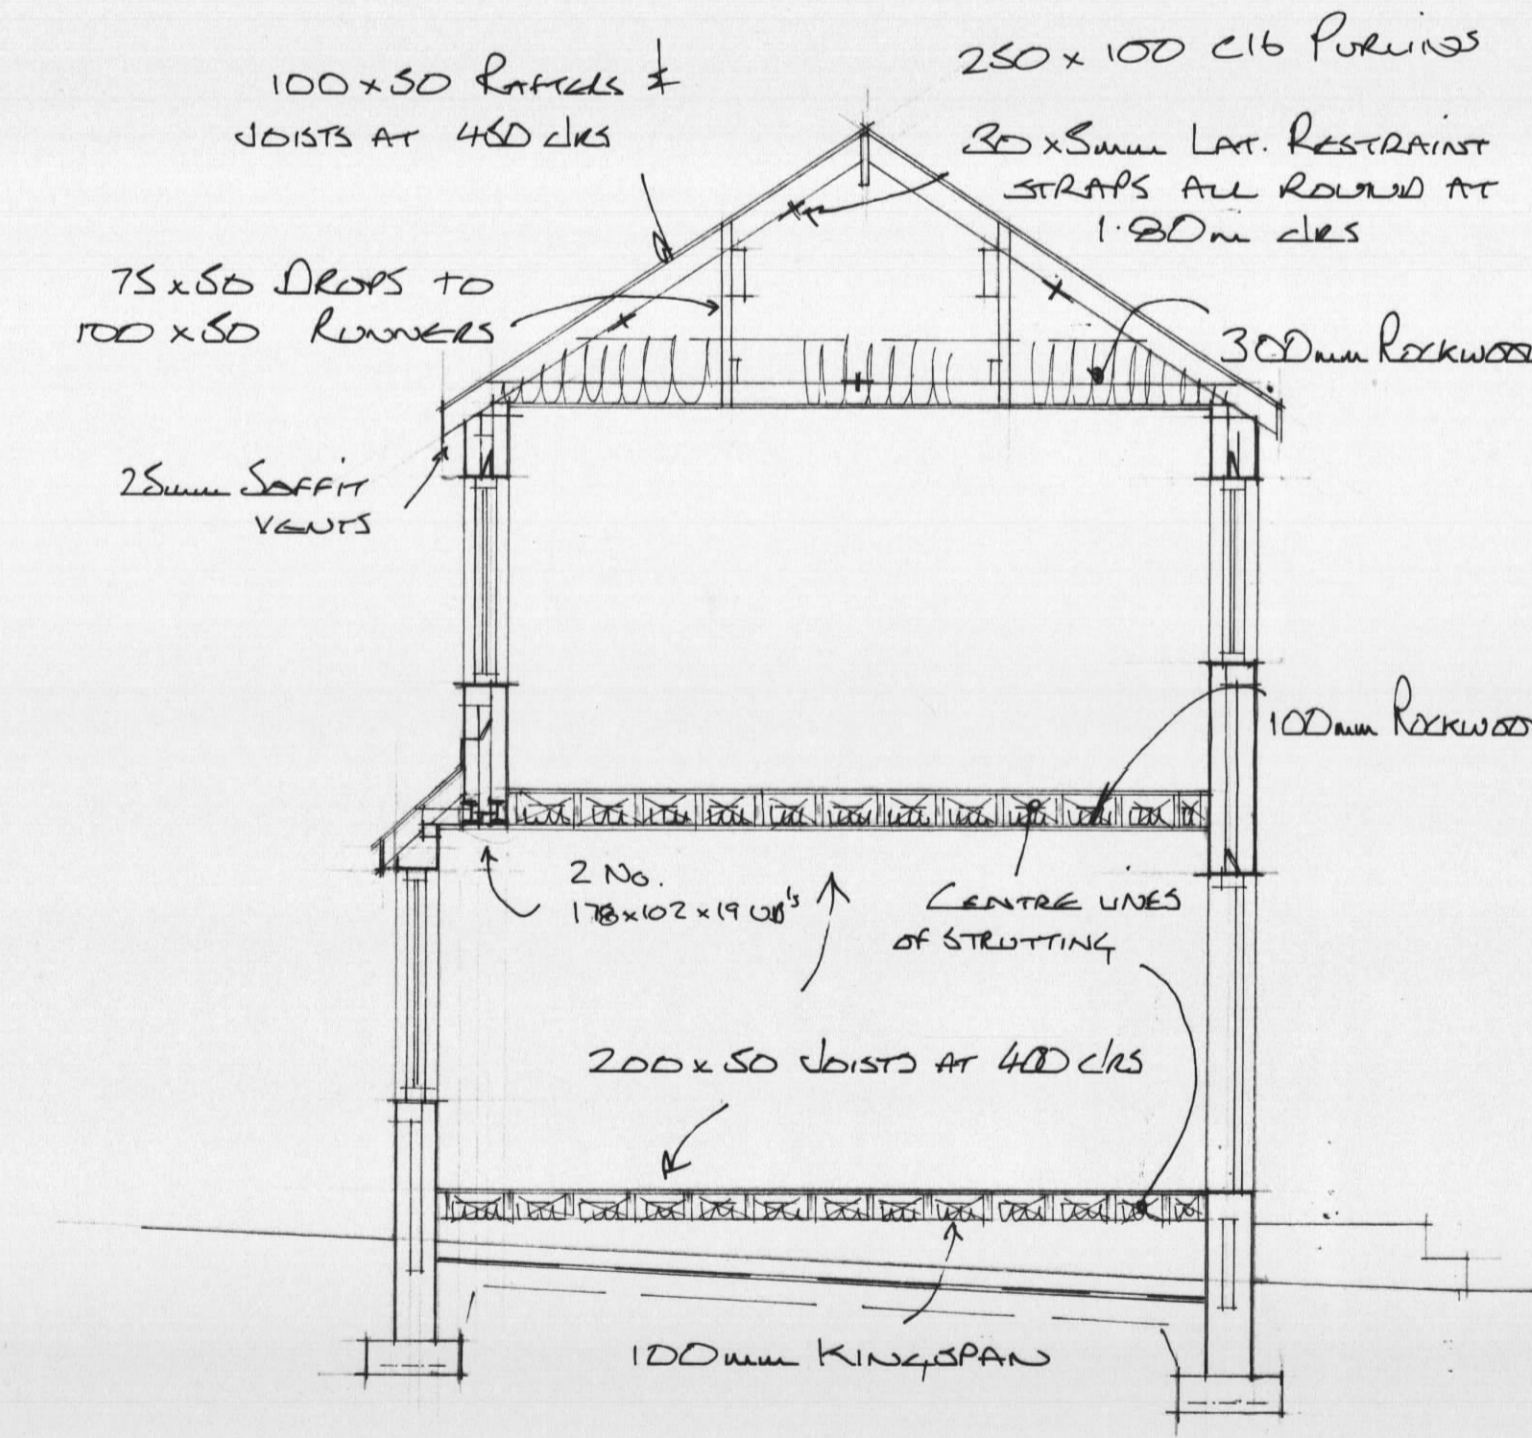 100 x 50 RAFTERS &
JOISTS AT 450 c/RS
250 x 100 C16 PURLINS
30 x 5mm LAT. RESTRAINT
STRAPS ALL ROUND AT
1.80m c/RS
75 x 50 DROPS TO
100 x 50 RUNNERS
300mm ROCKWOO
25mm SOFFIT
VENTS
100mm ROCKWOO
2 No.
178x102x19 UB's
CENTRE LINES
OF STRUTTING
200 x 50 JOISTS AT 400 c/RS
100mm KINGSPAN